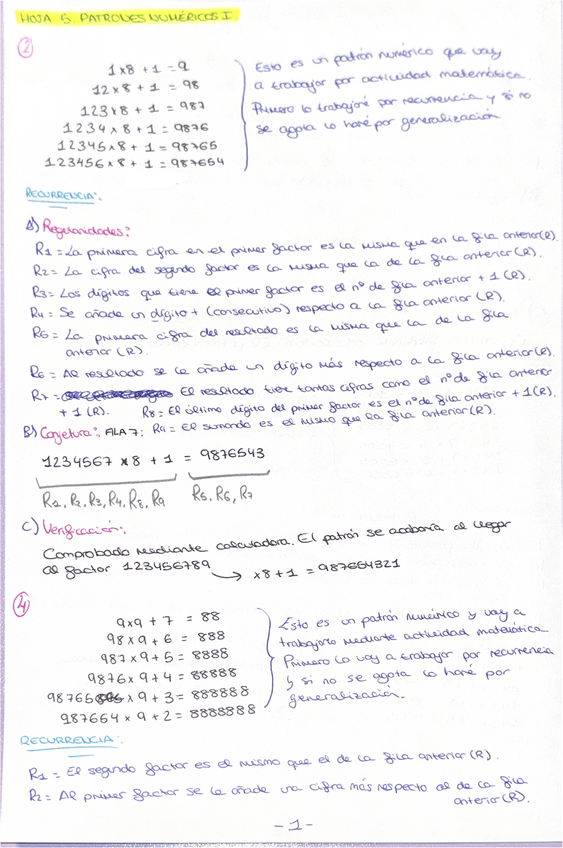 HOJA 5. PATRONES NUMÉRICOS I
2
1 x 8 + 1 = 9
12 x 8 + 1 = 98
123 x 8 + 1 = 987
1234 x 8 + 1 = 9876
12345 x 8 + 1 = 98765
123456 x 8 + 1 = 987654
Esto es un patrón numérico que voy
a trabajar por actividad matemática.
Primero lo trabajaré por recurrencia y si no
se agota lo haré por generalización
RECURRENCIA:
A) Regularidades:
R1 = La primera cifra en el primer factor es la misma que en la fila anterior (R).
R2 = La cifra del segundo factor es la misma que la de la fila anterior (R).
R3 = Los dígitos que tiene el primer factor es el nº de fila anterior + 1 (R).
R4 = Se añade un dígito + (consecutivo) respecto a la fila anterior (R).
R5 = La primera cifra del resultado es la misma que la de la fila
anterior (R).
R6 = Al resultado se le añade un dígito más respecto a la fila anterior (R).
R7 = El resultado tiene tantas cifras como el nº de fila anterior
+ 1 (R). R8 = El último dígito del primer factor es el nº de fila anterior + 1 (R).
B) Conjetura: ALA 7: R9 = El sumando es el mismo que la fila anterior (R).
1234567 x 8 + 1 = 9876543
R1, R2, R3, R4, R8, R9 R5, R6, R7
C) Verificación:
Comprobado mediante calculadora. El patrón se acabaría al llegar
al factor 123456789
x 8 + 1 = 987654321
4
9 x 9 + 7 = 88
98 x 9 + 6 = 888
987 x 9 + 5 = 8888
9876 x 9 + 4 = 88888
98765 x 9 + 3 = 888888
987654 x 9 + 2 = 8888888
Esto es un patrón numérico y voy a
trabajarlo mediante actividad matemática
Primero lo voy a trabajar por recurrencia
y si no se agota lo haré por
generalización.
RECURRENCIA:
R1 = El segundo factor es el mismo que el de la fila anterior (R).
R2 = Al primer factor se le añade una cifra más respecto al de la fila
anterior (R).
- 1 -